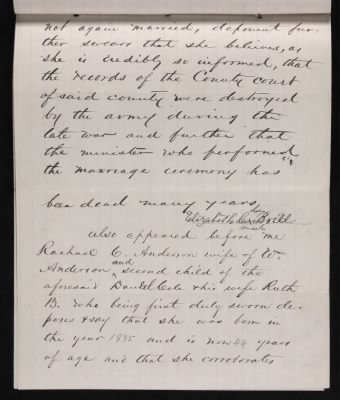 not again married, deponent fur-
ther swears that she believes, as
she is credibly so informed, that
the records of the County court
of said county were destroyed
by the army during the
late war and further that
the minister who performed
the marriage ceremony has
been dead many years
her
Elizabeth Odell
mark
also appeared before me
Rachael C. Anderson wife of Wm
and
Anderson, second child of the
aforesaid Daniel Cole & his wife Ruth
B. who being first duly sworn de-
poses & say that she was born in
the year 1835 and is now 44 years
of age and that she corroborates